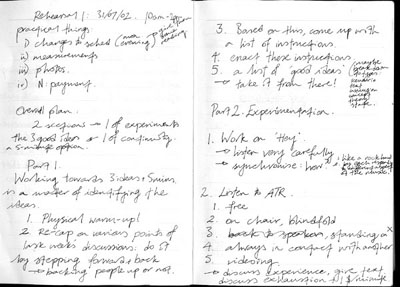 Rehearsal 1: 31/07/02. 10am-
practical things
i) changes to sched (evening)
ii) measurements
iii) photos.
iv) N: payment.
Overall plan.
2 sections → 1 of experiments
the 3 good ideas or 1 of continuity
a 5 minute option.
Part 1.
Working towards 3 ideas & 5 mins
is a matter of identifying the
ideas.
1. Physical warm-up!
2. Re-cap on various points of
last weeks discussions: do it
by stepping forward & back
→ backing people up or not.
3. Based on this, come up with
a list of instructions.
4. enact these instructions
5. a list of 'good ideas'
→ take it from there!
Part 2. Experimentation.
1. Work on 'Hoy'.
→ listen very carefully
→ synchronise: how?
like a rock band
of the music!
2. Listen to ATR.
1. free
2. on chair, blindfold
3. back to speakers, standing
4. always in contact with another
5. videoing
→ discuss experience, give text
discuss exhaustion